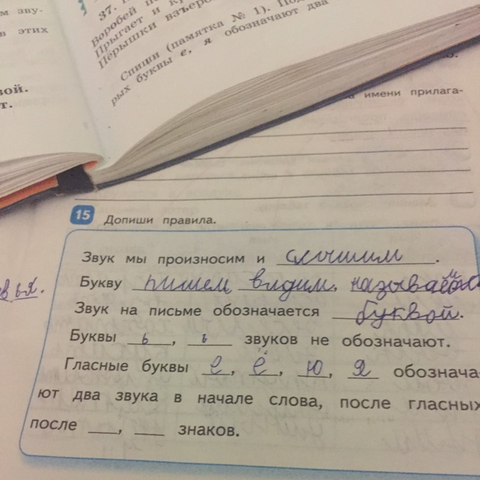 ом зву-
в этих
вой.
т.
37.
Воробей
Прыгает и
Пёрышки взъеро
Спиши (памятка № 1). По
рых буквы е, я обозначают два
а имени прилага-
15 Допиши правила.
Звук мы произносим и слышим.
Букву пишем, видим, называем
вья.
Звук на письме обозначается буквой.
Буквы ь, ъ звуков не обозначают.
Гласные буквы е, ё, ю, я обознача-
ют два звука в начале слова, после гласных
после __, __ знаков.